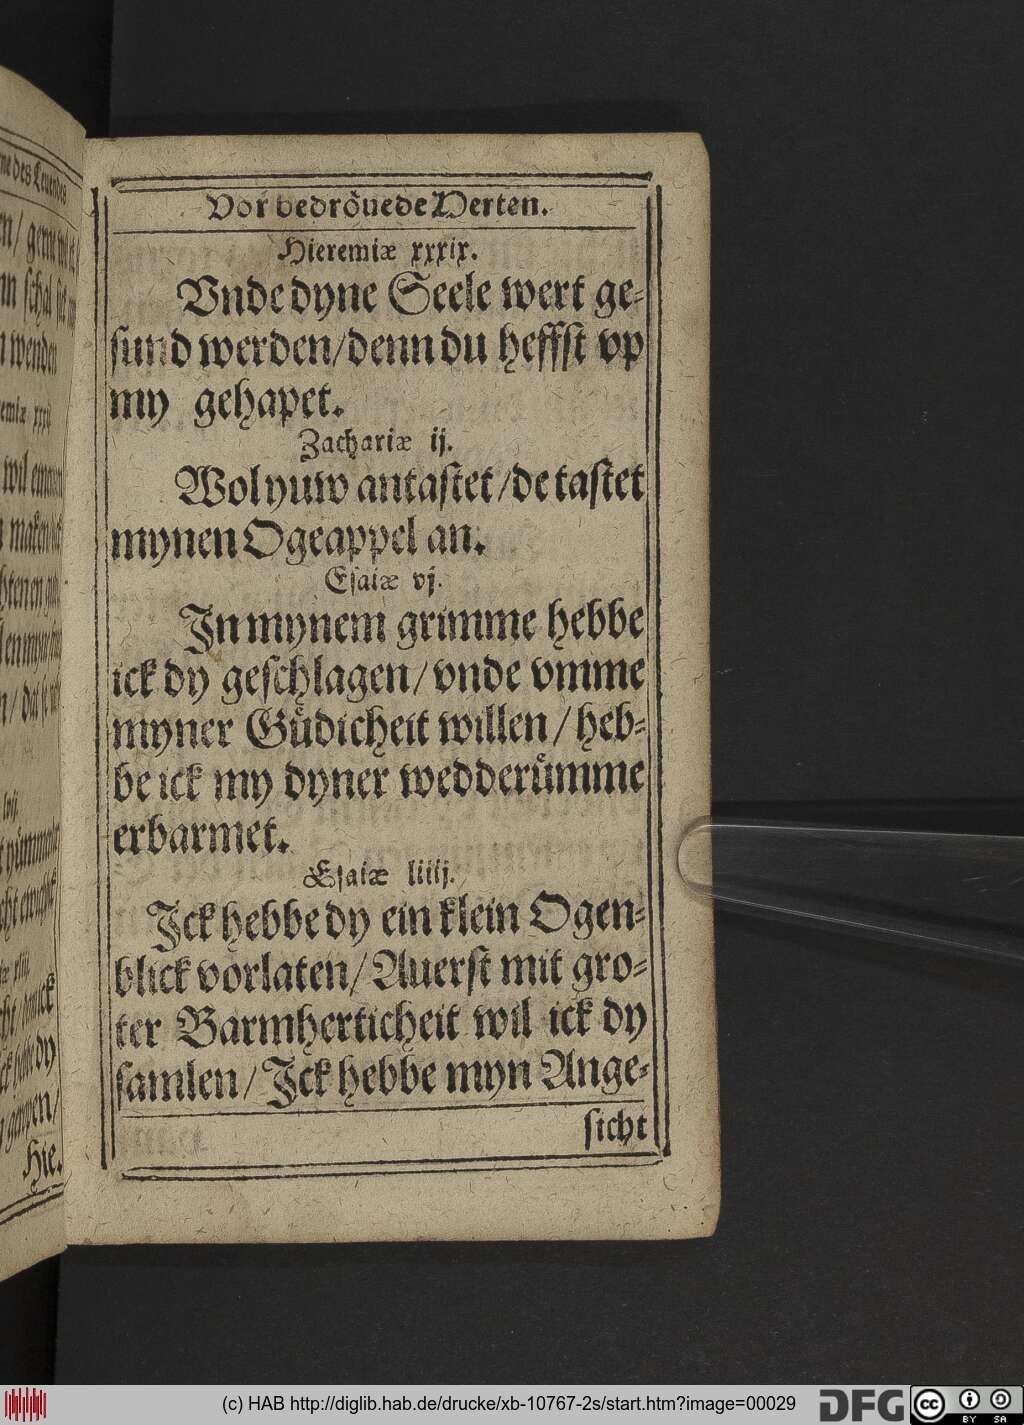 Vor bedrőuede Herten.
Hieremiæ xxxix.
Vnde dyne Seele wert ge-
sund werden/denn du heffst vp
my gehapet.
Zachariæ ij.
Wol yuw antastet/de tastet
mynen Ogeappel an.
Esaiæ vj.
In mynem grimme hebbe
ick dy geschlagen/vnde vmme
myner Gůdicheit willen/heb-
be ick my dyner wedderůmme
erbarmet.
Esaiæ liiij.
Ick hebbe dy ein klein Ogen-
blick vorlaten/Auerst mit gro-
ter Barmherticheit wil ick dy
samlen/Ick hebbe myn Ange-
sicht
(c) HAB http://diglib.hab.de/drucke/xb-10767-2s/start.htm?image=00029
DFG
cc BY SA